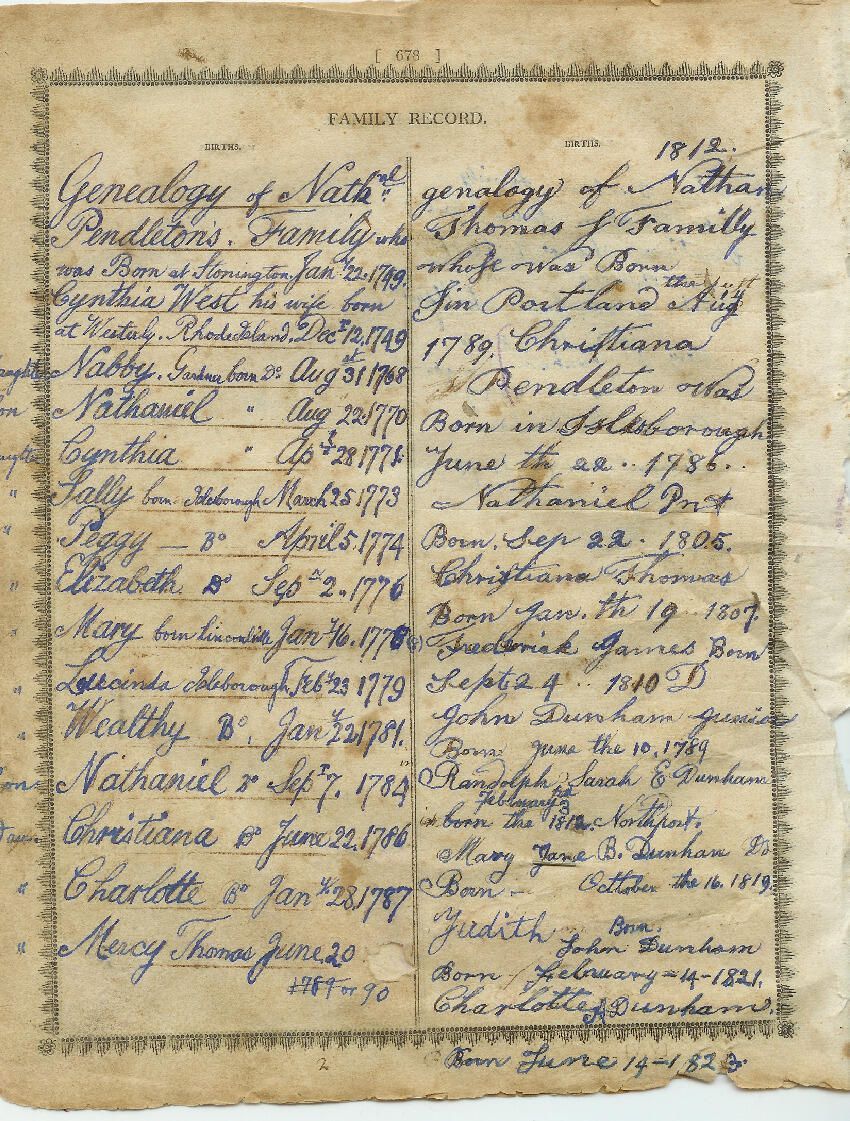 [ 678 ]
FAMILY RECORD.
BIRTHS.
Genealogy of Nathal
Pendleton's. Family who
was Born at Stonington Jany 22. 1749.
Cynthia West his wife born
at Westerly. Rhode Island. Dec 12, 1749
Nabby. Gardner born Do Aug st 31 1768
Nathaniel " Aug 22. 1770
Cynthia " Ap 28 1771.
Sally born Isleborough March 25 1773
Peggy — Do April 5. 1774
Elizabeth. Do Sep 2. 1776
Mary born Linconlville Jany 16. 1778
Lucinda Isleborough Feby 23 1779
Wealthy Do. Jany 22 1781.
Nathaniel Do Sept 7. 1784
Christiana Do June 22. 1786
Charlotte Do Jany 28. 1787
Mercy Thomas June 20
1789 or 90
2
BIRTHS.
1812.
genalogy of Nathan
Thomas Familly
whose was Born
the
Sin Portland Aug
1789. Christiana
Pendleton was
Born in Islsborough
June th 22 .. 1786..
Nathaniel
Born. Sep 22. 1805.
Christiana Thomas
Born Jan. th 19 .. 1807.
Frederick James Born
Sept 24 .. 1810 D
John Dunham
Born June the 10. 1789
Randolph Sarah E Dunham
February 3
born the 1812. Northport.
Mary Jane B. Dunham Do
Born — October the 16. 1819
Judith Born.
John Dunham
Born February = 14 - 1821.
Charlotte A Dunham.
Born June 14 - 1823.